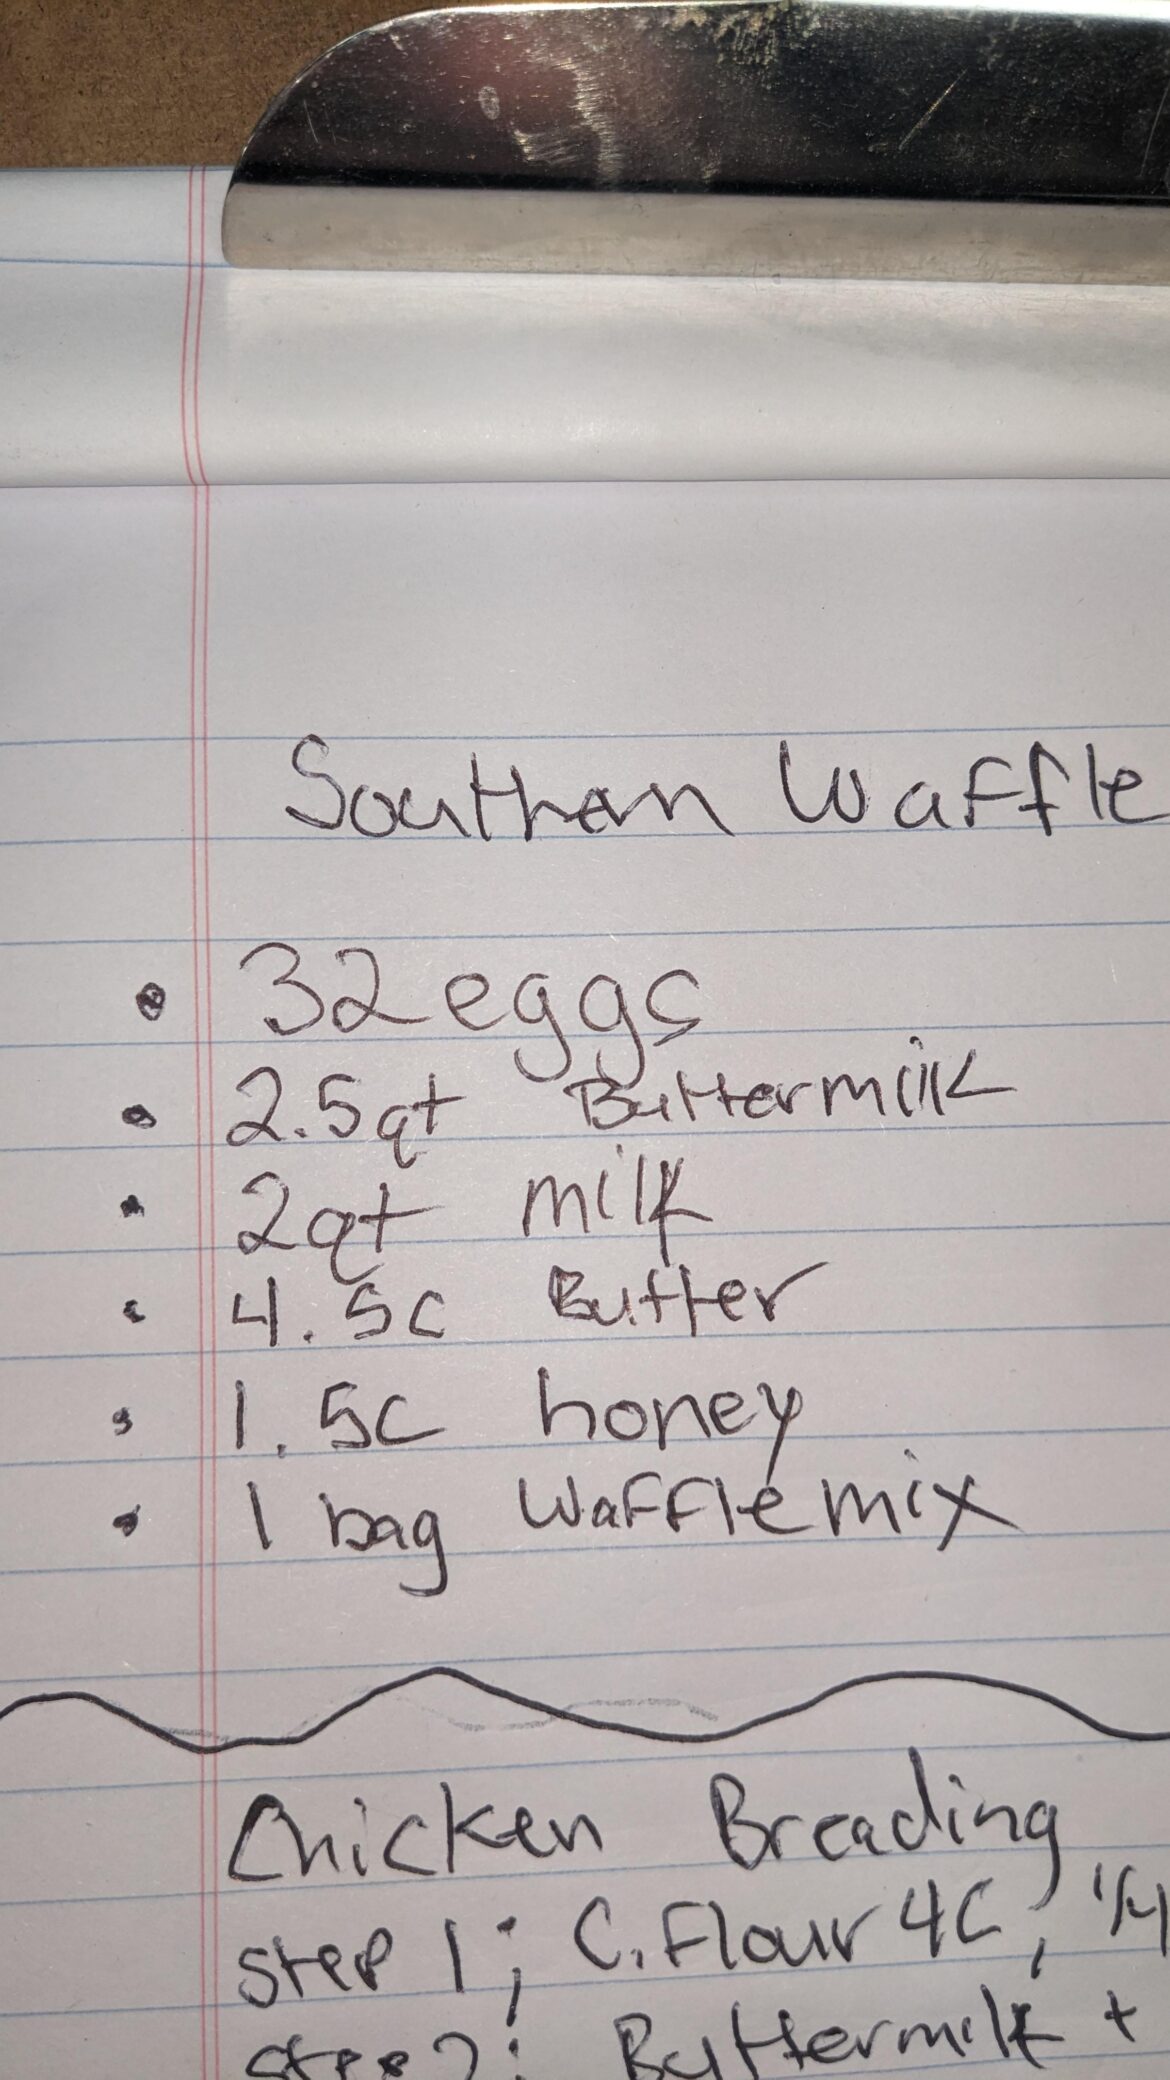 Southern Waffle
• 32 eggs
• 2.5qt Buttermilk
• 2qt milk
• 4.5c Butter
• 1.5c honey
• 1 bag waffle mix
Chicken Breading
Step 1; C. Flour 4C, 1/4
Step 2: Buttermilk +